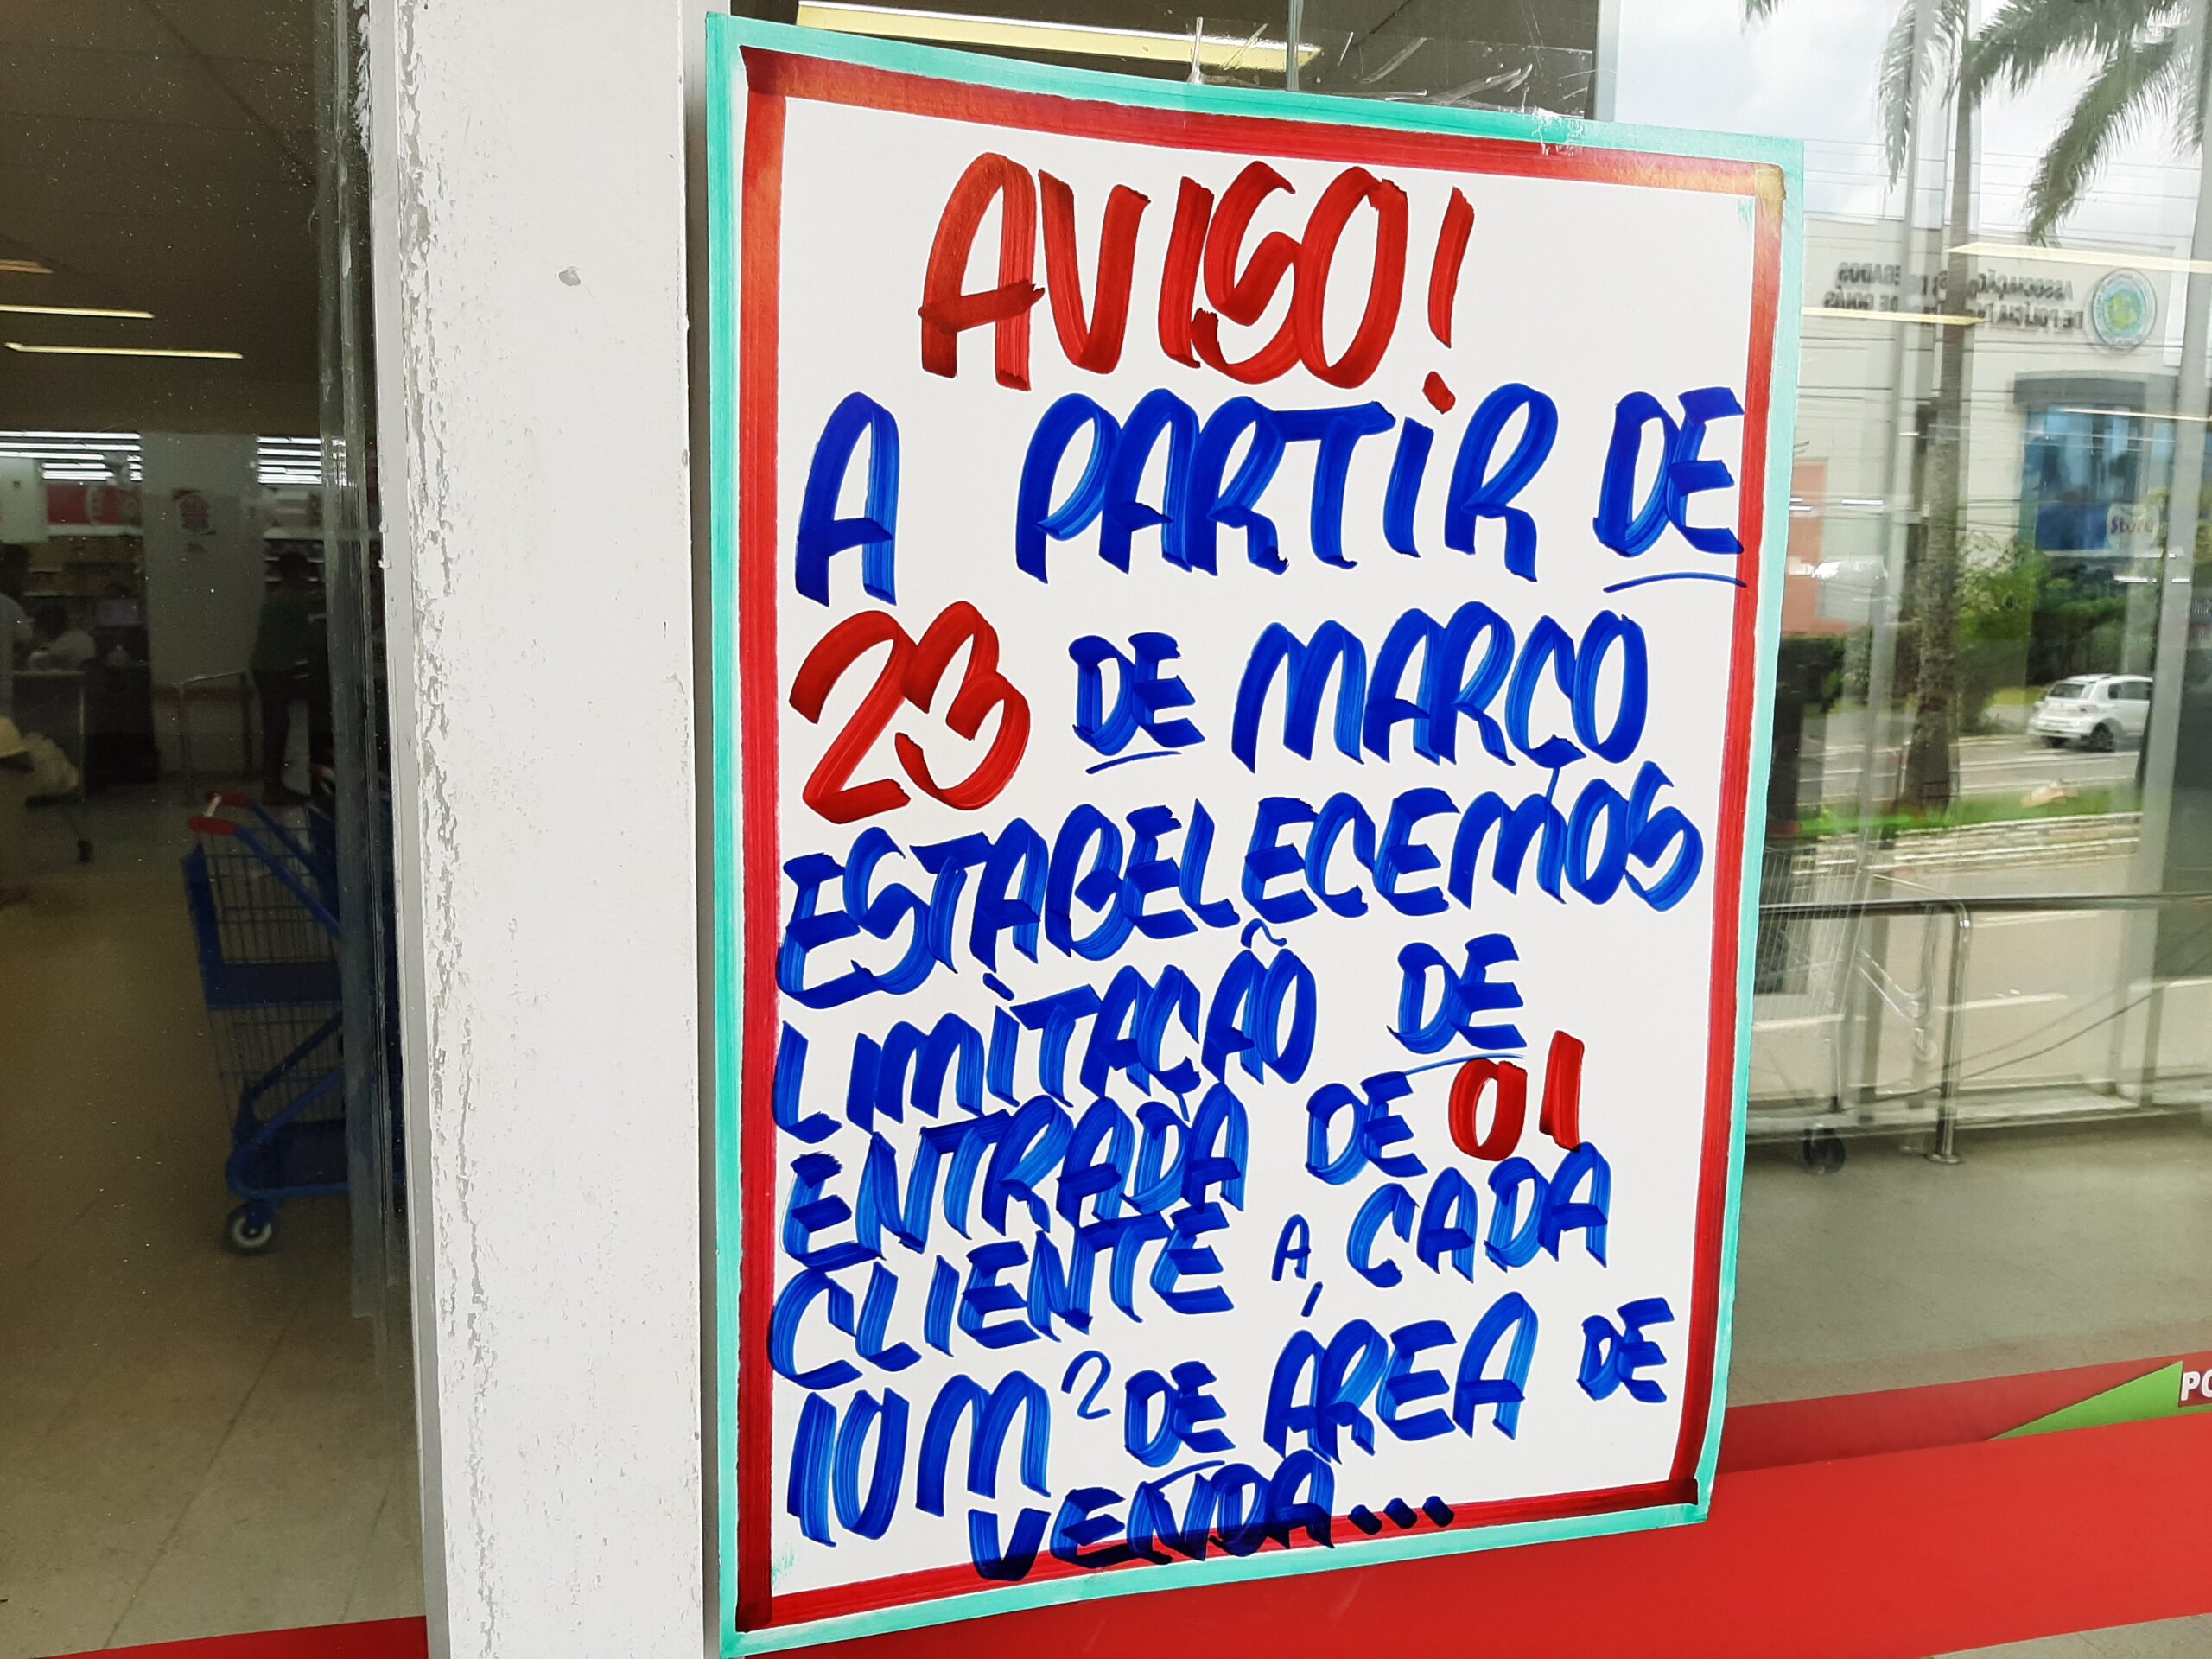 AVISO!
A PARTIR DE
23 DE MARÇO
ESTABELECEMOS
LIMITAÇÃO DE
ENTRADA DE 01
CLIENTE A CADA
10M² DE ÁREA DE
VENDA...
ASSOCIAÇÃO
DE GOIÁS
PO